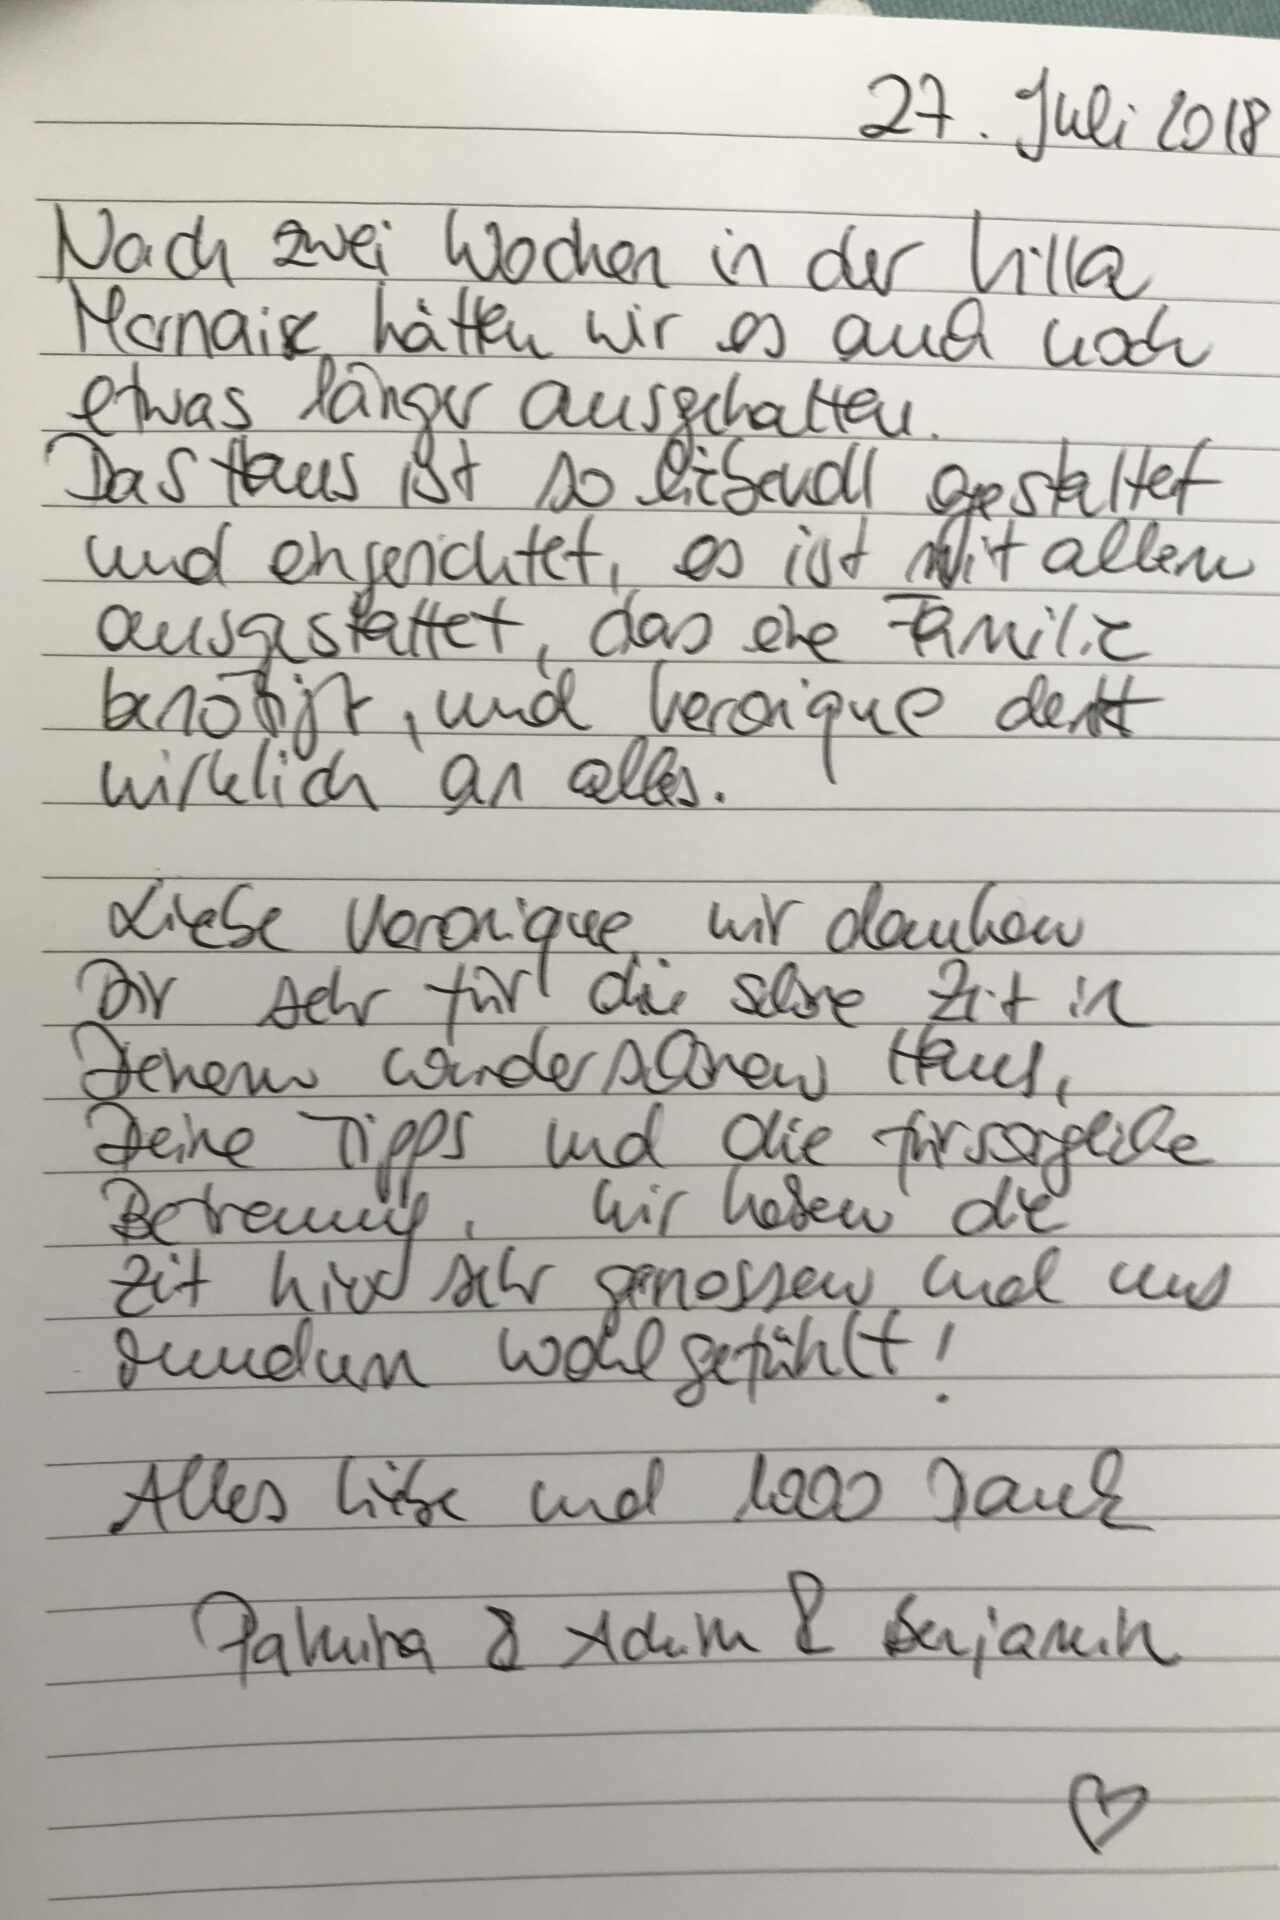 27. Juli 2018
Nach zwei Wochen in der Villa
hätten wir es auch noch
etwas länger ausgehalten.
Das Haus ist so liebevoll gestaltet
und eingerichtet, es ist mit allem
ausgestattet, das eine Familie
benötigt, und Veronique denkt
wirklich an alles.
Liebe Veronique, wir danken
Dir sehr für die schöne Zeit in
Deinem wunderschönen Haus,
Deine Tipps und die fürsorgliche
Betreuung. Wir haben die
Zeit hier sehr genossen und uns
rundum wohl gefühlt!
Alles Liebe und 1000 Dank
& & Benjamin